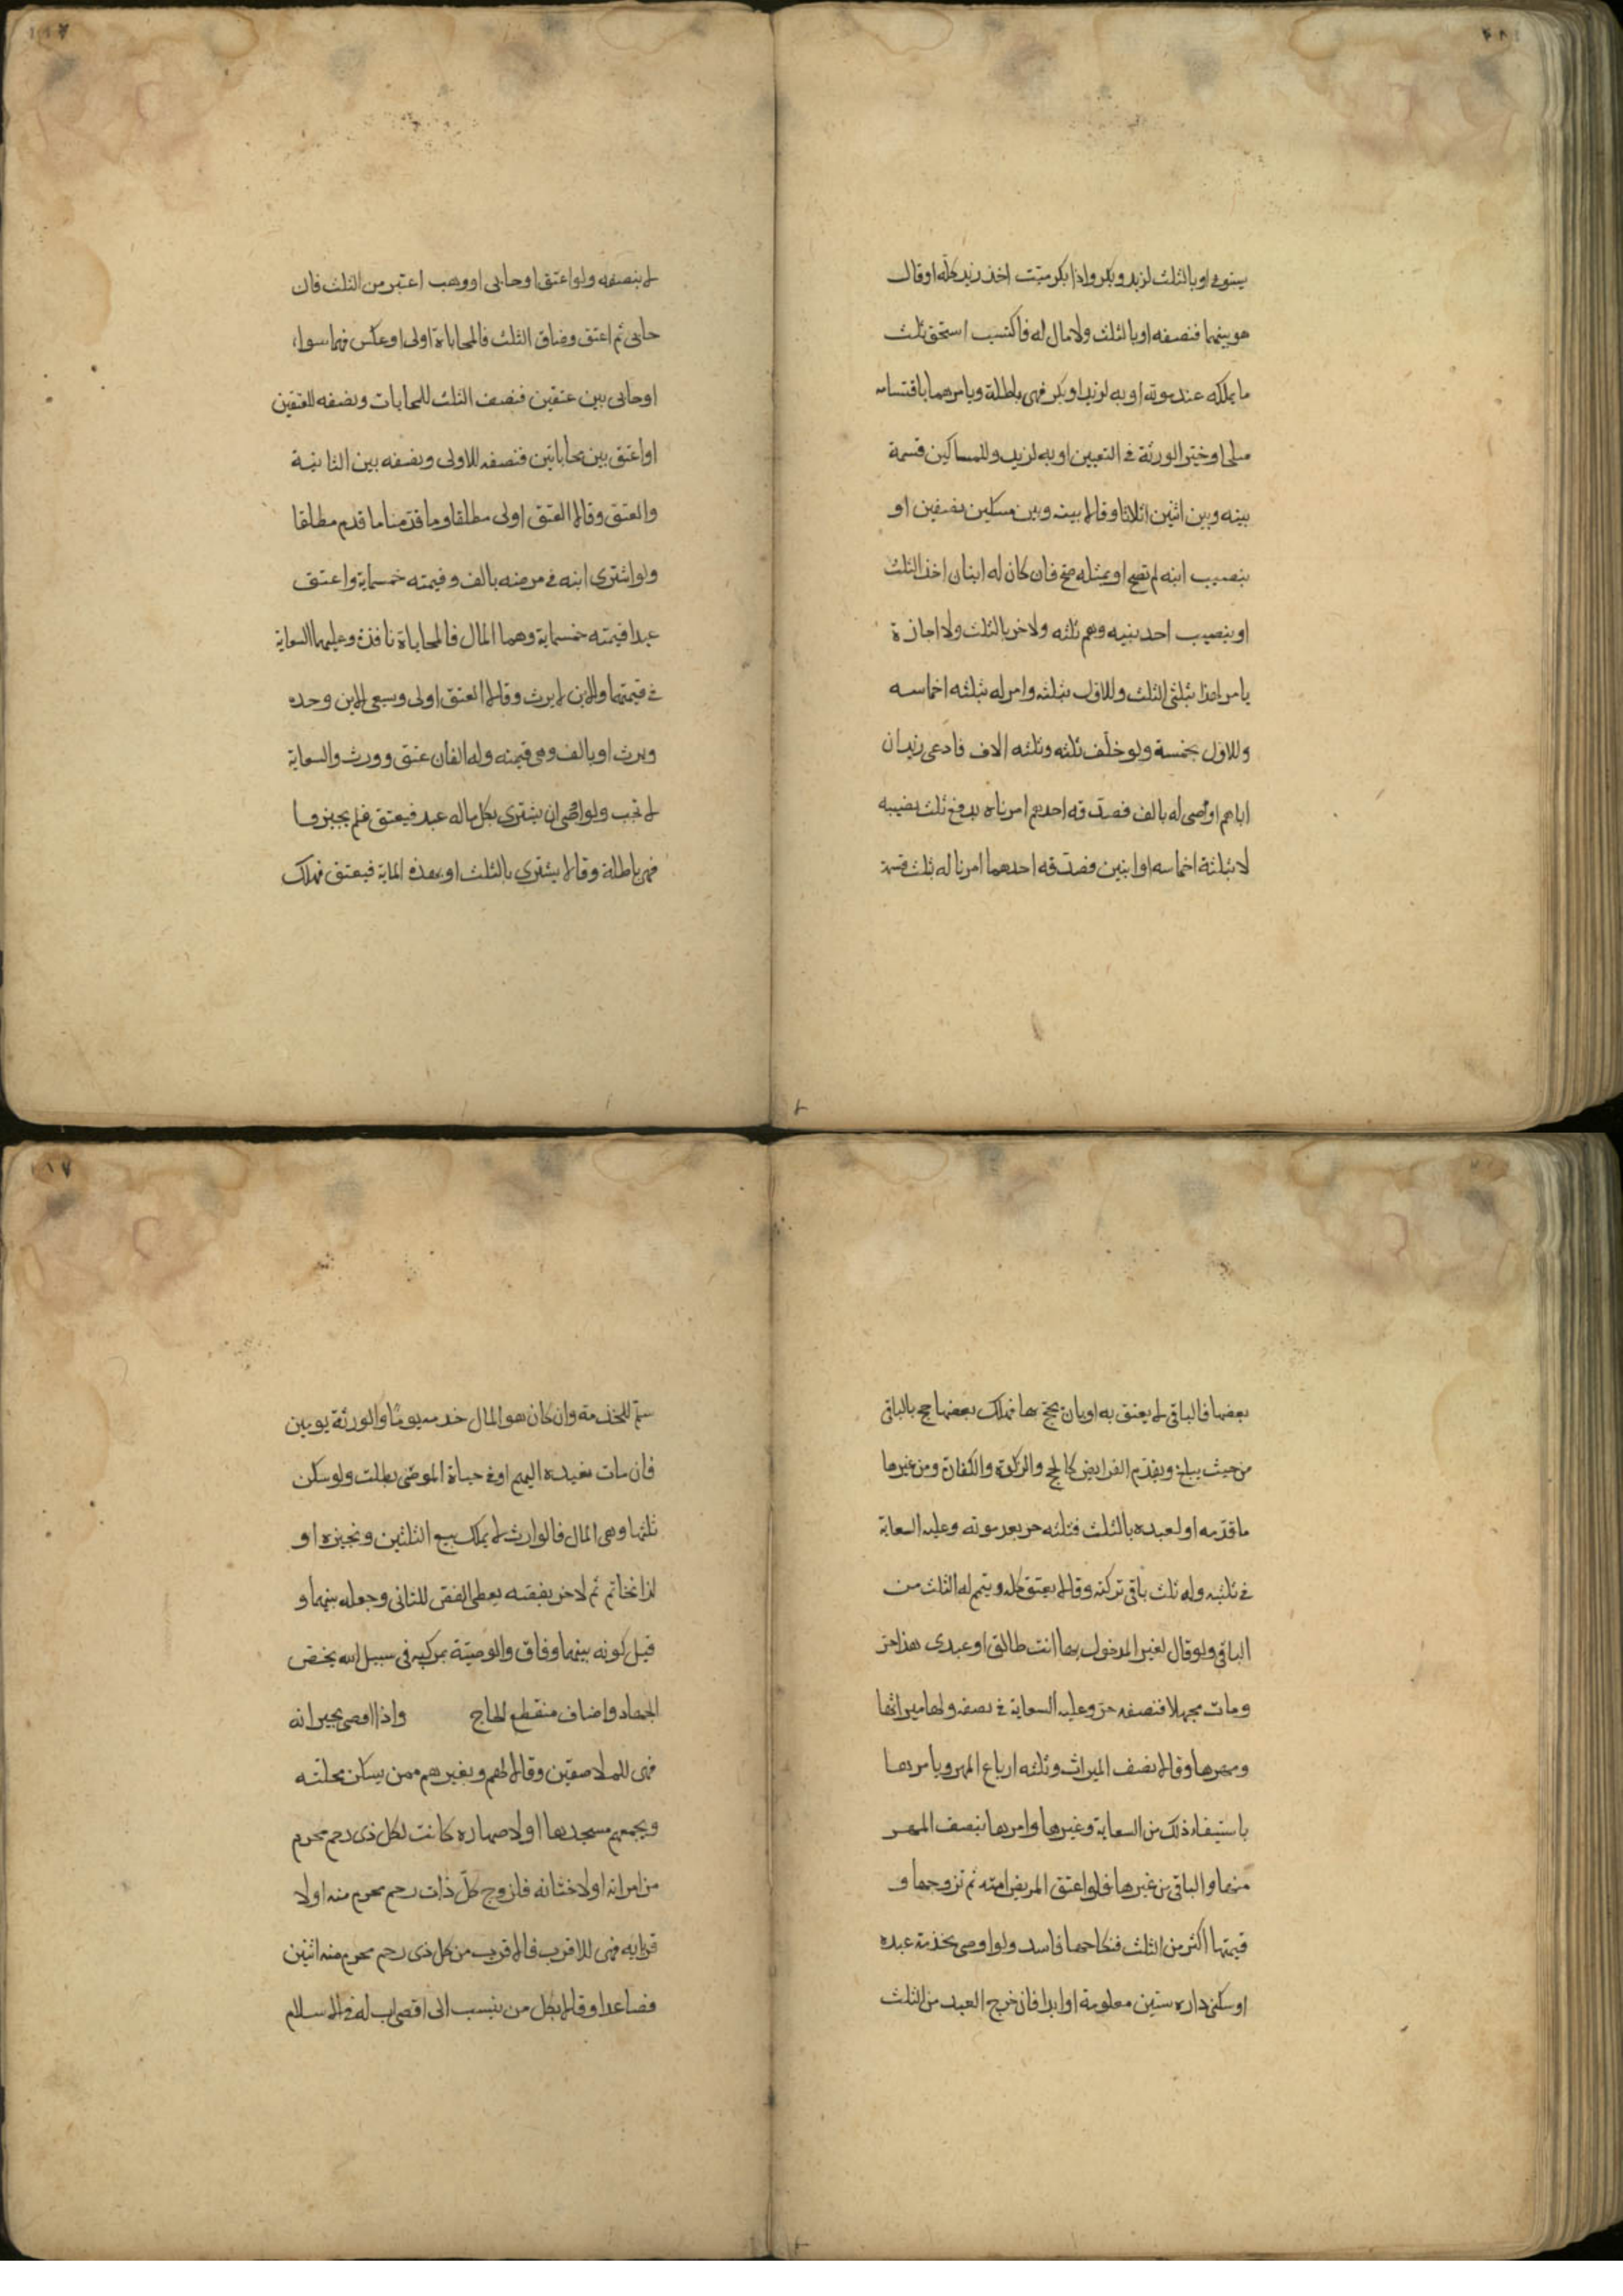 يستوفي او بالثلث لزيد وبكر واذا بكر ميت اخذ زيد كله او قال
هو بينهما فنصفه او بالثلث ولا مال له فاكتسب استحق ثلث
ما يملكه عند موته او به لزيد او بكر فهي باطلة ويامرهما باقتسامه
او خير الورثة في التعيين او به لزيد وللمساكين قسمة
بينه وبين اثنين اثلاثا وقالا بينه وبين مسكين نصفين او
بنصيب ابنه لم تصح او بمثله صح فان كان له ابنان اخذ الثلث
او بنصيب احد بنيه وهم ثلثه ولاخر بالثلث ولا اجازة
يامر لهذا بثلثي الثلث وللاول بثلثه وامر له بثلثه اخماسه
وللاول بخمسة ولو خلف ثلثه وثلثه الاف فادعى زيد ان
اباهم اوصى له بالف فصدقه احدهم امرناه بدفع ثلث نصيبه
لا بثلثة اخماسه او ابنين فصدقه احدهما امرنا له بثلث قسمه
لا بنصفه ولو اعتق او حابى او وهب اعتبر من الثلث فان
حابى ثم اعتق وضاق الثلث فالمحاباة اولى او عكس فهما سواء
او حابى بين عتقين فنصف الثلث للمحابات ونصفه للعتقين
او اعتق بين محاباتين فنصفه للاولى ونصفه بين الثانية
والعتق وقالا العتق اولى مطلقا وما قدمنا ما قدم مطلقا
ولو اشترى ابنه في مرضه بالف وقيمته خمسماية واعتق
عبدا قيمته خمسماية وهما المال فالمحاباة نافذة وعليهما السعاية
في قيمتهما والابن لا يرث وقالا العتق اولى ويسعى الابن وحده
ويرث او بالف وهي قيمته وله الفان عتق وورث والسعاية
لا تجب ولو اوصى ان يشترى بكل ماله عبد فيعتق فلم يجيزوا
فهي باطلة وقالا يشترى بالثلث او بهذه الماية فيعتق فهلك
بعضها فالباقي لا يعتق به او بان يحج بها فهلك بعضها حج بالباقي
من حيث يبلغ ويقدم الفرايض كالحج والزكوة والكفارة ومن غيرها
ما قدمه او لعبده بالثلث فثلثه حر بعد موته وعليه السعاية
في ثلثيه وله ثلث باقي تركته وقالا يعتق كله ويتم له الثلث من
الباقي ولو قال لغير المدخول بها انت طالق او عبدي هذا حر
ومات مجهلا فنصفه حر وعليه السعاية في نصفه ولها ميراثها
ومهرها وقالا نصف الميراث وثلثه ارباع المهر ويامرها
باستيفاء ذلك من السعاية وغيرها وامرها بنصف المهر
منها والباقي من غيرها فلو اعتق المريض امته ثم تزوجها و
قيمتها اكثر من الثلث فنكاحها فاسد ولو اوصى بخدمة عبده
او سكنى داره سنين معلومة او ابدا فان خرج العبد من الثلث
سلم للخدمة وان كان هو المال خدمه يوما والورثة يومين
فان مات نعيده اليهم او في حياة الموصي بطلت ولو سكن
ثلثها وهي المال فالوارث لا يملك بيع الثلثين ونجيزه او
لذا بخاتم ثم لاخر بفصه يعطى الفص للثاني وجعله بينهما و
قيل كونه بينهما وفاق والوصية بمركبه في سبيل الله يخص
الجهاد واضاف منقطع الحاج واذا اوصى لجيرانه
فهي للملاصقين وقالا لهم ولغيرهم ممن يسكن محلته
ويجمعهم مسجدها او لاصهاره كانت لكل ذي رحم محرم
من امراته او لاختانه فلزوج كل ذات رحم محرم منه او لا
قربايه فهي للاقرب فالاقرب من كل ذي رحم محرم منه اثنين
فصاعدا وقالا بكل من ينسب الى اقصى اب له في الاسلام